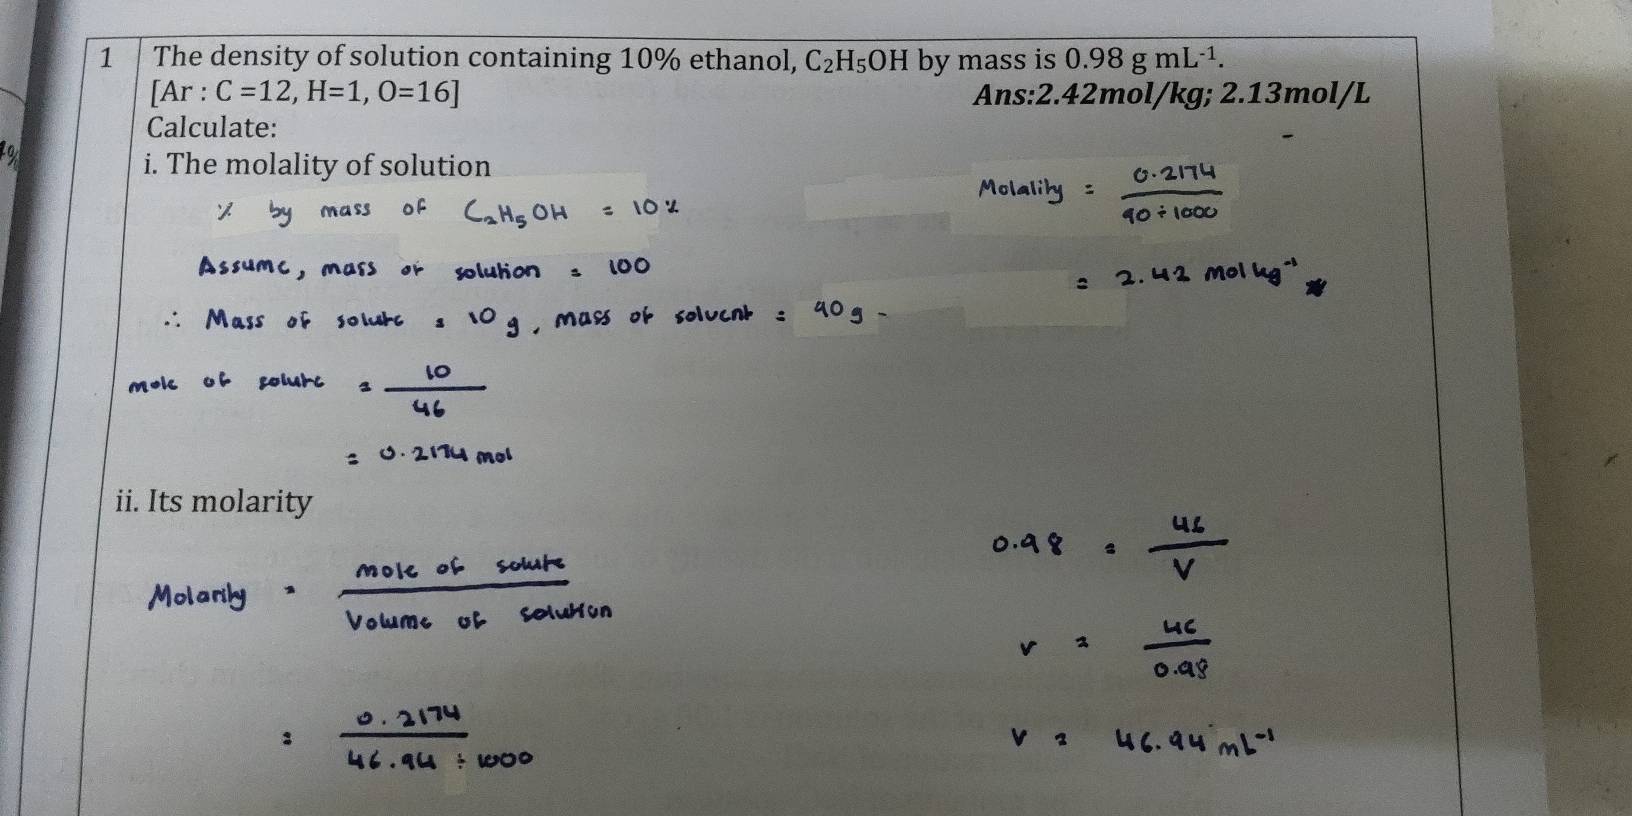 1 The density of solution containing 10% ethanol, C₂H₅OH by mass is 0.98 g mL⁻¹.
[Ar : C =12, H=1, O=16] Ans:2.42mol/kg; 2.13mol/L
Calculate:
i. The molality of solution
% by mass of C₂H₅OH = 10%
Assume, mass of solution = 100
∴ Mass of solute = 10 g, mass of solvent = 90g
mole of solute = 10/46
= 0.2174 mol
Molality = 0.2174/90÷1000
= 2.42 mol kg⁻¹
ii. Its molarity
Molarity = mole of solute/Volume of solution
= 0.2174/46.94 ÷ 1000
0.98 = 46/V
V = 46/0.98
V = 46.94 mL⁻¹